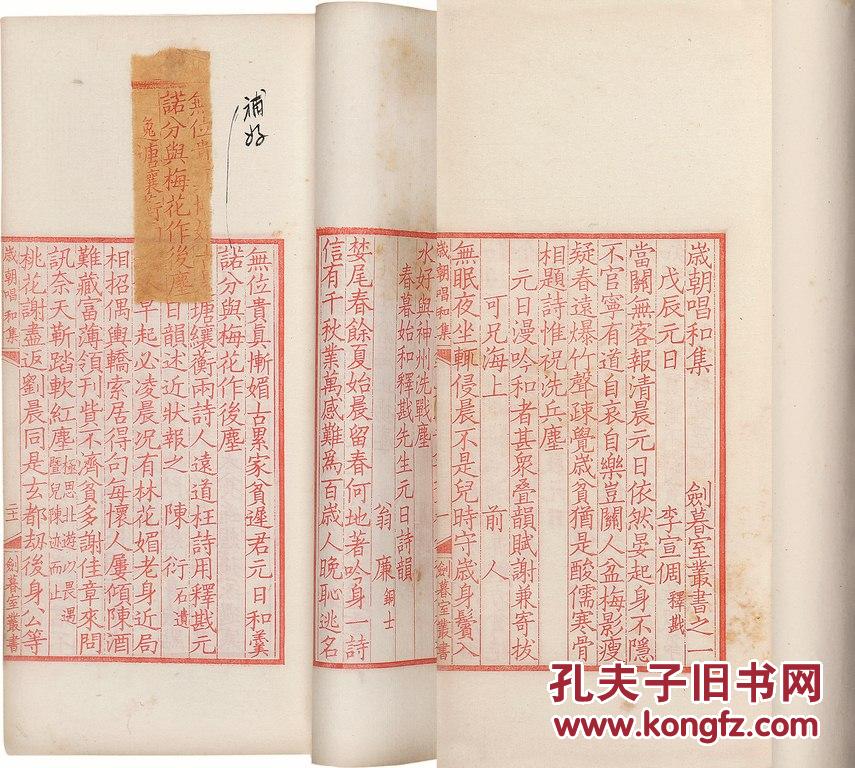 歲朝唱和集 劍暮室叢書之一
戊辰元日 李宣倜 釋戡
當關無客報清晨元日依然晏起身不隱
不官寧有道自哀自樂豈關人盆梅影瘦
疑春遠爆竹聲疎覺歲貧猶是酸儒寒骨
相題詩惟祝洗兵塵
元日漫吟和者甚衆叠韻賦謝兼寄拔
可兄海上 前人
無眠夜坐輒侵晨不是兒時守歲身鬢入
歲朝唱和集 一 劍暮室叢書
水好與神州洗戰塵
春暮始和釋戡先生元日詩韻
翁廉 銅士
婪尾春餘夏始晨留春何地著吟身一詩
信有千秋業萬感難爲百歲人晚恥逃名
補好
無位貴
諾分與梅花作後塵
無位貴真慚媚古累家貧遲君元日和羹
諾分與梅花作後塵
塘纕蘅兩詩人遠道枉詩用釋戡元
日韻述近狀報之 陳衍 石遺
早起必凌晨况有林花媚老身近局
相招偶輿轎索居得句每懷人屢傾陳酒
難藏富薄領刊貲不濟貧多謝佳章來問
訊奈天靳踏軟紅塵 極思北遊以畏遇暨兒陳迹而止
桃花謝盡返劉晨同是玄都劫後身公等
歲朝唱和集 劍暮室叢書
孔夫子旧书网
www.kongfz.com